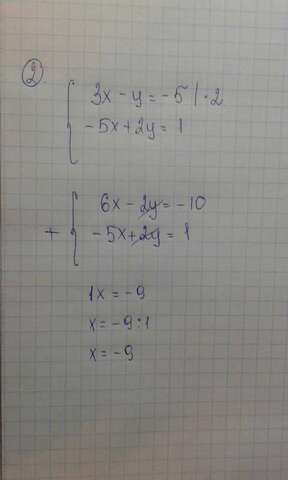 2
3x - y = -5 | · 2
-5x + 2y = 1
6x - 2y = -10
+
-5x + 2y = 1
1x = -9
x = -9 : 1
x = -9